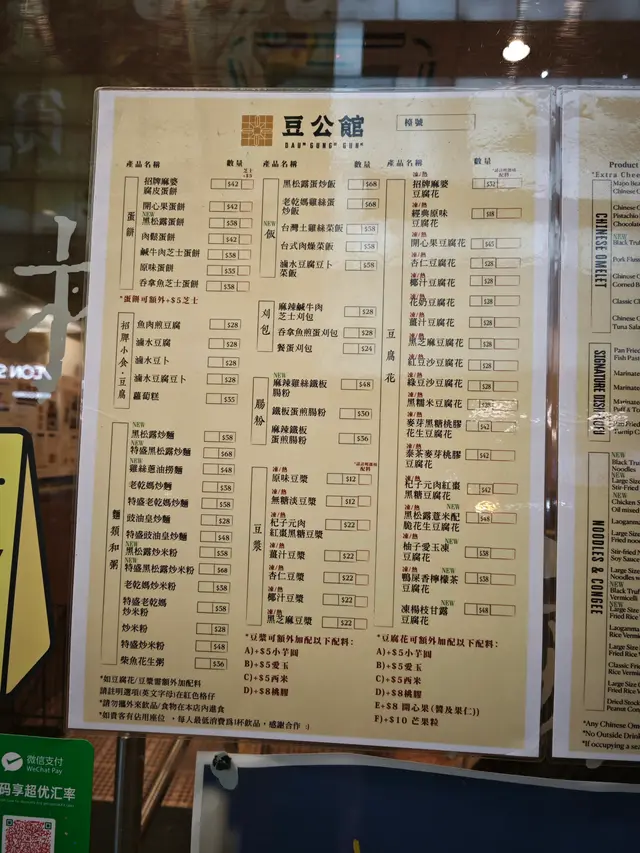 豆公館
DAUH GUNGH GUNH
檯號
產品名稱 數量 芝士+$5
蛋餅
招牌麻婆腐皮蛋餅 $42
開心果蛋餅 $42
NEW
黑松露蛋餅 $58
肉鬆蛋餅 $42
鹹牛肉芝士蛋餅 $58
原味蛋餅 $35
吞拿魚芝士蛋餅 $58
*蛋餅可額外+$5芝士
招牌小食·豆腐
魚肉煎豆腐 $28
滷水豆腐 $28
滷水豆卜 $28
滷水豆腐豆卜 $28
蘿蔔糕 $35
麵類和粥
NEW
黑松露炒麵 $58
NEW
特盛黑松露炒麵 $68
NEW
雞絲蔥油撈麵 $48
老乾媽炒麵 $58
特盛老乾媽炒麵 $58
豉油皇炒麵 $28
特盛豉油皇炒麵 $48
NEW
黑松露炒米粉 $58
NEW
特盛黑松露炒米粉 $68
老乾媽炒米粉 $58
特盛老乾媽
炒米粉 $58
炒米粉 $28
特盛炒米粉 $48
柴魚花生粥 $36
*如豆腐花/豆漿需額外加配料
請註明選項(英文字母)在紅色格仔
*請勿攜外來飲品/食物在本店內進食
*如貴客有佔用座位 ，每人最低消費爲1杯飲品，感謝合作 :)
產品名稱 數量
NEW
飯
黑松露蛋炒飯 $68
老乾媽雞絲蛋
炒飯 $68
台灣土雞絲菜飯 $58
台式肉燥菜飯 $58
滷水豆腐豆卜
菜飯 $58
刈包
麻辣鹹牛肉
芝士刈包 $28
吞拿魚煎蛋刈包 $28
餐蛋刈包 $24
腸粉
NEW
麻辣雞絲鐵板
腸粉 $48
鐵板蛋煎腸粉 $30
麻辣鐵板
蛋煎腸粉 $36
豆漿
凍/熱
原味豆漿 $12
凍/熱
無糖淡豆漿 $12
凍/熱
杞子元肉
紅棗黑糖豆漿 $22
凍/熱
薑汁豆漿 $22
凍/熱
杏仁豆漿 $22
凍/熱
椰汁豆漿 $22
凍/熱
黑芝麻豆漿 $22
*豆漿可額外加配以下配料：
A)+$5小芋圓
B)+$5愛玉
C)+$5西米
D)+$8桃膠
產品名稱 數量
豆腐花
凍/熱
招牌麻婆
豆腐花 $32
凍/熱
經典原味
豆腐花 $18
凍/熱
開心果豆腐花 $45
凍/熱
杏仁豆腐花 $28
凍/熱
椰汁豆腐花 $28
凍/熱
花奶豆腐花 $28
凍/熱
薑汁豆腐花 $28
凍/熱
黑芝麻豆腐花 $28
凍/熱
紅豆沙豆腐花 $28
凍/熱
綠豆沙豆腐花 $28
凍/熱
黑糯米豆腐花 $28
凍/熱
麥芽黑糖桃膠
花生豆腐花 $42
凍/熱
泰茶麥芽桃膠
豆腐花 $42
凍/熱
杞子元肉紅棗
黑糖豆腐花 $42
凍/熱 NEW
黑松露薏米配
脆花生豆腐花 $48
凍/熱 NEW
柚子愛玉凍
豆腐花 $38
凍/熱 NEW
鴨屎香檸檬茶
豆腐花 $38
NEW
凍楊枝甘露
豆腐花 $48
*豆腐花可額外加配以下配料：
A)+$5小芋圓
B)+$5愛玉
C)+$5西米
D)+$8桃膠
E)+$8 開心果(醬及果仁))
F)+$10 芒果粒
Product
*Extra Chee
CHINESE OMELET
Mapo Bea
Chinese O
Chinese O
Pistachio
Chocolate
NEW
Black Tru
Pork Floss
Chinese O
Corned B
Classic C
Chinese O
Tuna Sala
SIGNATURE DISH·TOFU
Pan Fried
Fish Paste
Marinate
Marinate
Marinate
Puff & T
Pan Fried
Turnip C
NOODLES & CONGEE
NEW
Black Tru
Noodles
Large Size
Stir-Fried
Chicken S
Oil mixed
Laoganma
Large Size
Fried noo
Stir-fried N
Soy Sauce
Large Size
Noodles w
Black Truf
Vermicelli
Large Size
Vermicelli
Laoganma
Rice Verm
Large Size
Fried Rice
Classic Fr
Rice Verm
Large Size
Fried Rice
Dried Stoc
Peanut Con
*Any Chinese Om
*No Outside Drink
*If occupying a sea
微信支付
WeChat Pay
码享超优汇率
ÆON S